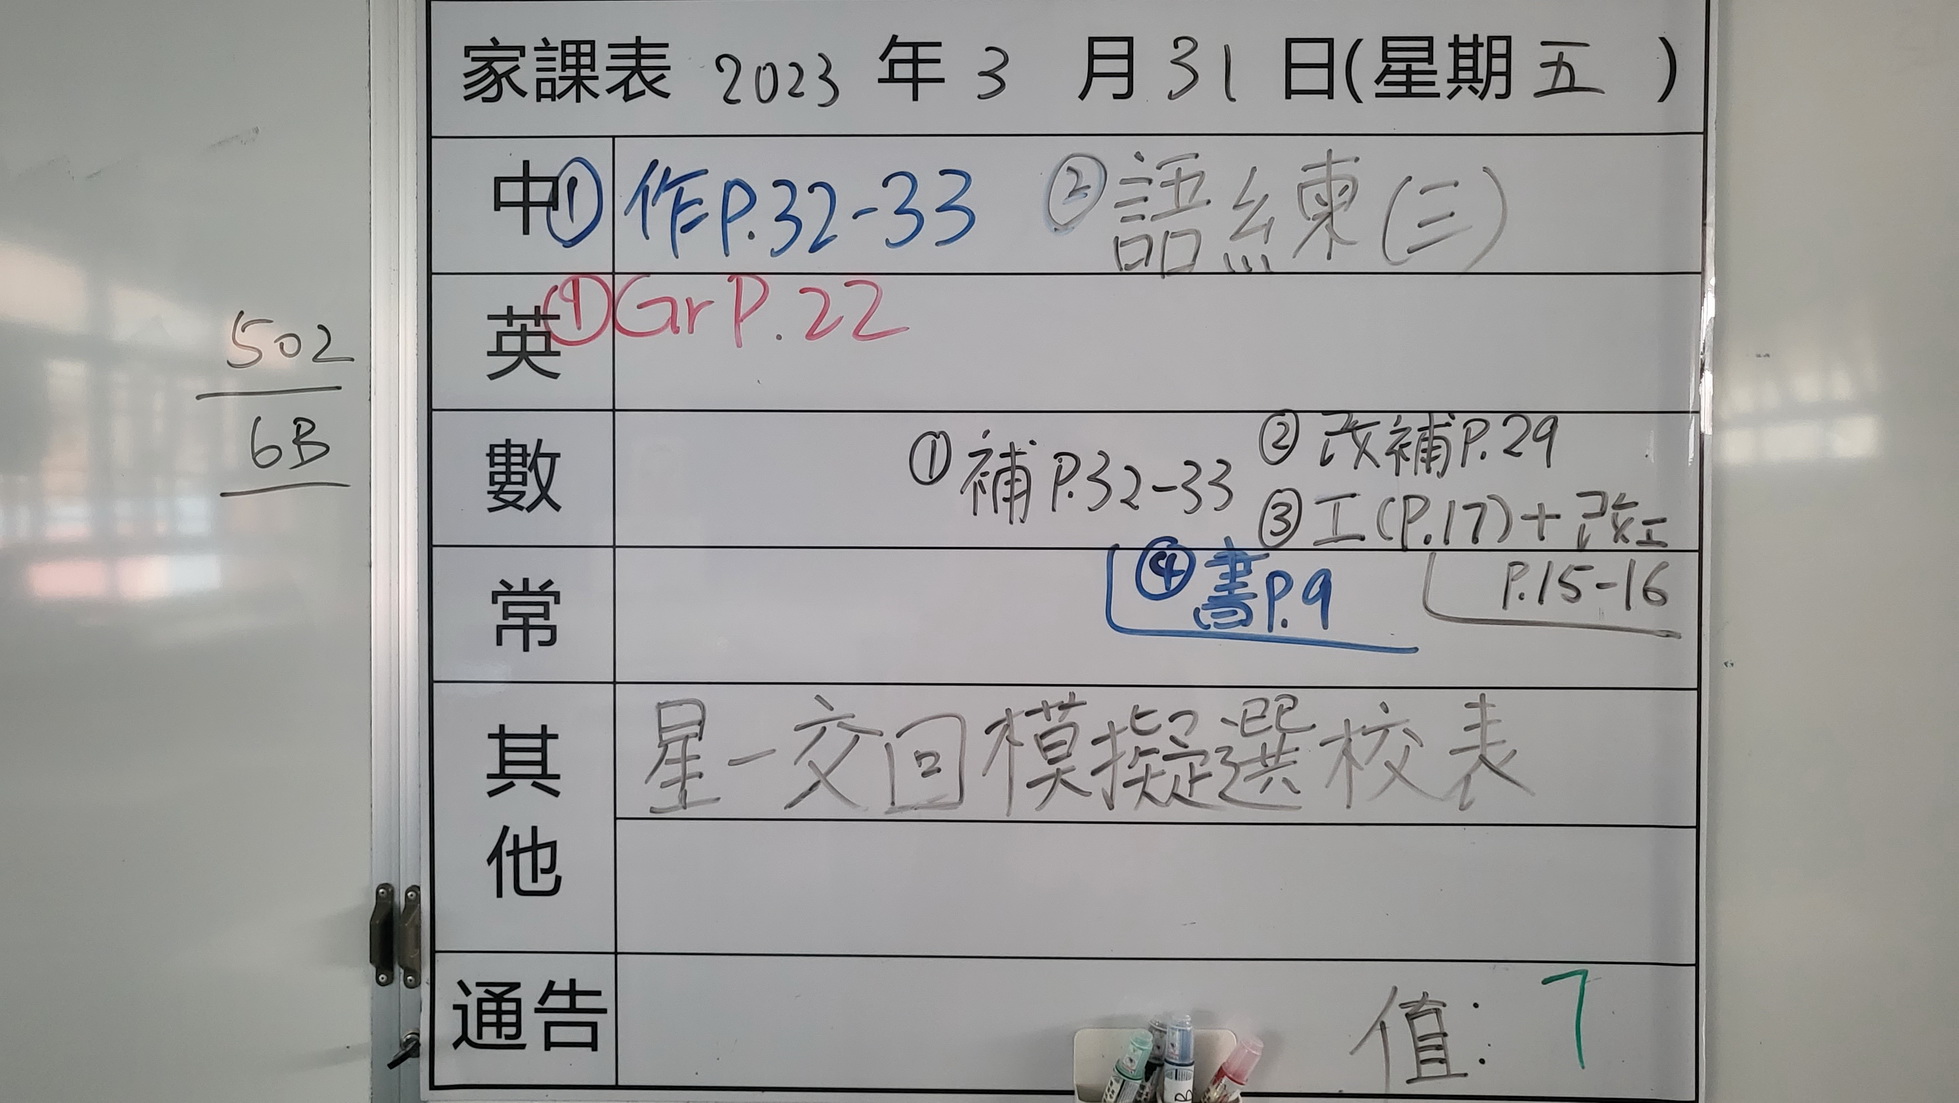 家課表 2023 年 3 月 31 日(星期五)
中 ① 作P.32-33 ② 語練(三)
英 ① Gr P.22
數 ① 補P.32-33 ② 改補P.29
③ 工(P.17)+改工
P.15-16
④ 書P.9
常
其他 星一交回模擬選校表
通告 值: 7
502
6B